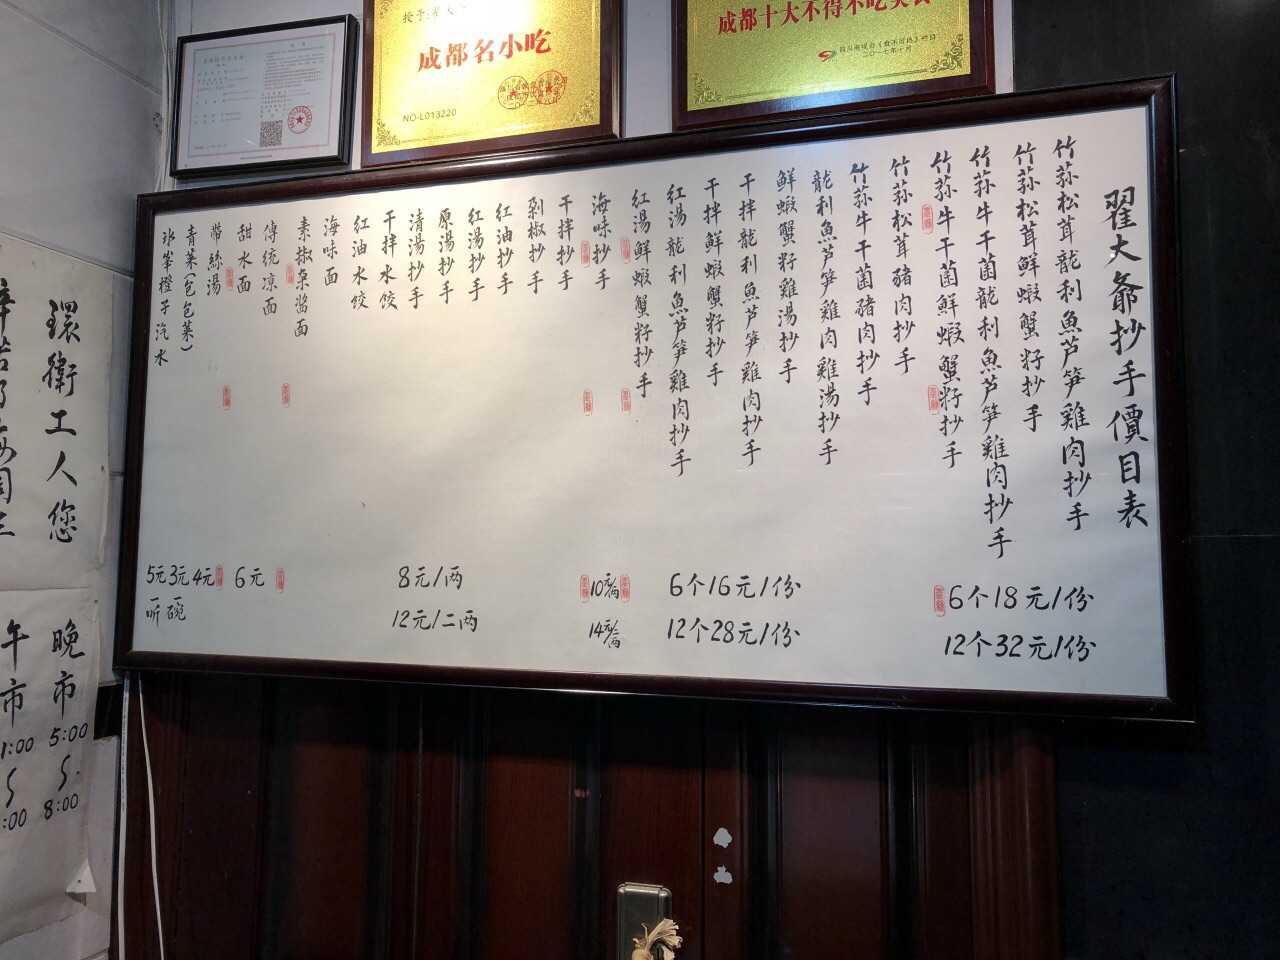 成都名小吃
NO-L013220
成都十大不得不吃美食
翟大爺抄手價目表
竹荪松茸龍利魚芦笋雞肉抄手
竹荪松茸鮮蝦蟹籽抄手
竹荪牛干菌龍利魚芦笋雞肉抄手
竹荪牛干菌鮮蝦蟹籽抄手
竹荪松茸豬肉抄手
竹荪牛干菌豬肉抄手
龍利魚芦笋雞肉雞湯抄手
鮮蝦蟹籽雞湯抄手
干拌龍利魚芦笋雞肉抄手
干拌鮮蝦蟹籽抄手
红湯龍利魚芦笋雞肉抄手
红湯鮮蝦蟹籽抄手
海味抄手
干拌抄手
剁椒抄手
红油抄手
红湯抄手
原湯抄手
清湯抄手
干拌水饺
红油水饺
海味面
素椒杂醬面
傳統凉面
甜水面
帶絲湯
青菜(包包菜)
冰峯橙子汽水
6个18元/份
12个32元/份
6个16元/份
12个28元/份
10元/两
14元/二两
8元/两
12元/二两
6元
4元
3元一碗
5元一听
環衛工人您
晚市
5:00
8:00
午市
1:00
:00